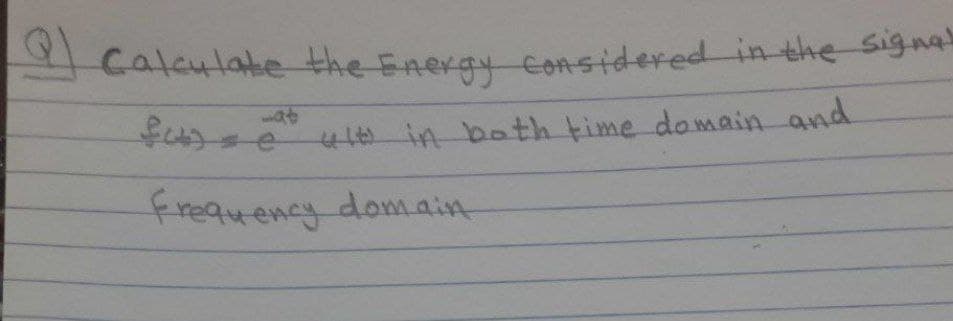 Q) Calculate the Energy considered in the signal
f(t) = e^-at u(t) in both time domain and
frequency domain